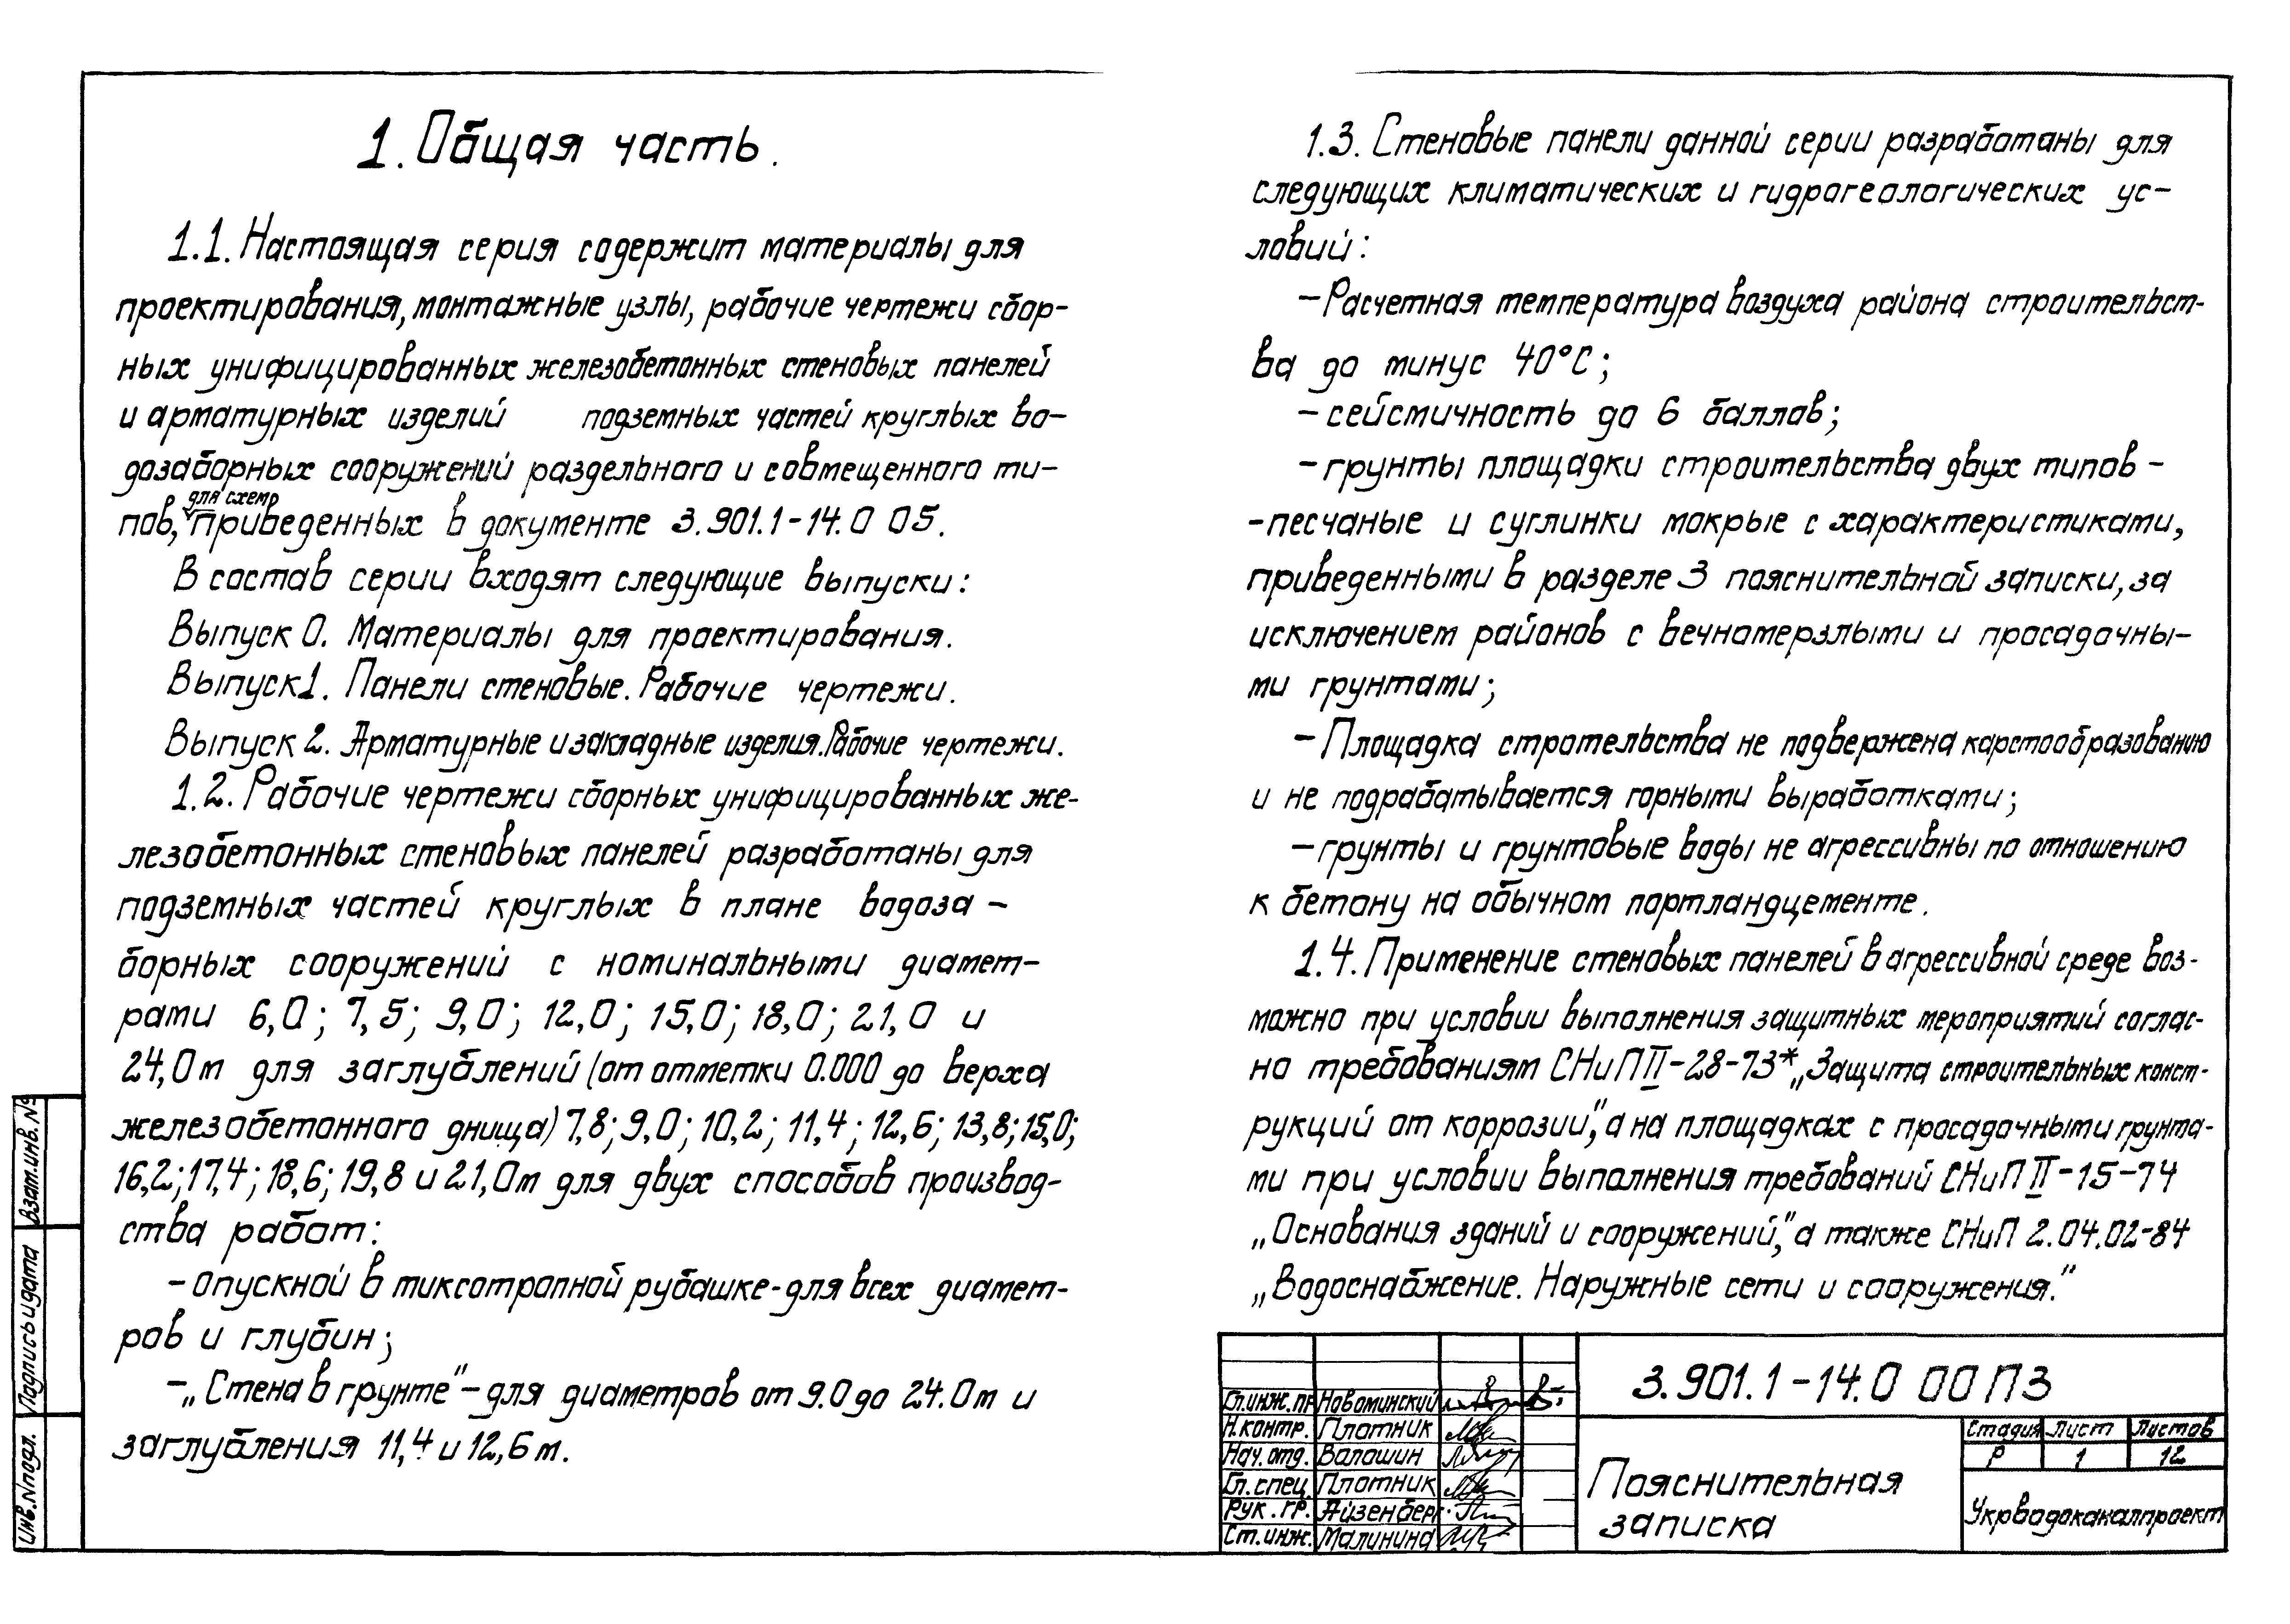 1. Общая часть.
1.1. Настоящая серия содержит материалы для
проектирования, монтажные узлы, рабочие чертежи сбор-
ных унифицированных железобетонных стеновых панелей
и арматурных изделий подземных частей круглых во-
дозаборных сооружений раздельного и совмещенного ти-
для схем
пов, приведенных в документе 3.901.1-14.0 05.
В состав серии входят следующие выпуски:
Выпуск 0. Материалы для проектирования.
Выпуск 1. Панели стеновые. Рабочие чертежи.
Выпуск 2. Арматурные и закладные изделия. Рабочие чертежи.
1.2. Рабочие чертежи сборных унифицированных же-
лезобетонных стеновых панелей разработаны для
подземных частей круглых в плане водоза-
борных сооружений с номинальными диамет-
рами 6,0; 7,5; 9,0; 12,0; 15,0; 18,0; 21,0 и
24,0 м для заглублений (от отметки 0.000 до верха
железобетонного днища) 7,8; 9,0; 10,2; 11,4; 12,6; 13,8; 15,0;
16,2; 17,4; 18,6; 19,8 и 21,0 м для двух способов производ-
ства работ:
- опускной в тиксотропной рубашке - для всех диамет-
ров и глубин;
- „Стена в грунте" - для диаметров от 9.0 до 24.0 м и
заглубления 11,4 и 12,6 м.
1.3. Стеновые панели данной серии разработаны для
следующих климатических и гидрогеологических ус-
ловий:
- Расчетная температура воздуха района строительст-
ва до минус 40°С;
- сейсмичность до 6 баллов;
- грунты площадки строительства двух типов -
- песчаные и суглинки мокрые с характеристиками,
приведенными в разделе 3 пояснительной записки, за
исключением районов с вечномерзлыми и просадочны-
ми грунтами;
- Площадка стротельства не подвержена карстообразованию
и не подрабатывается горными выработками;
- грунты и грунтовые воды не агрессивны по отношению
к бетону на обычном портландцементе.
1.4. Применение стеновых панелей в агрессивной среде воз-
можно при условии выполнения защитных мероприятий соглас-
но требованиям СНиП II-28-73* „Защита строительных конст-
рукций от коррозии", а на площадках с просадочными грунта-
ми при условии выполнения требований СНиП II-15-74
„Основания зданий и сооружений", а также СНиП 2.04.02-84
„Водоснабжение. Наружные сети и сооружения."
Взам. инв. №
Подпись и дата
Инв. N подл.
Гл. инж. пр Новоминский
Н. контр. Плотник
Нач. отд. Валошин
Гл. спец. Плотник
Рук. гр. Айзенберг
Ст. инж. Малинина
3.901.1-14.0 00 ПЗ
Пояснительная
записка
Стадия Лист Листов
Р 1 12
Укрводоканалпроект